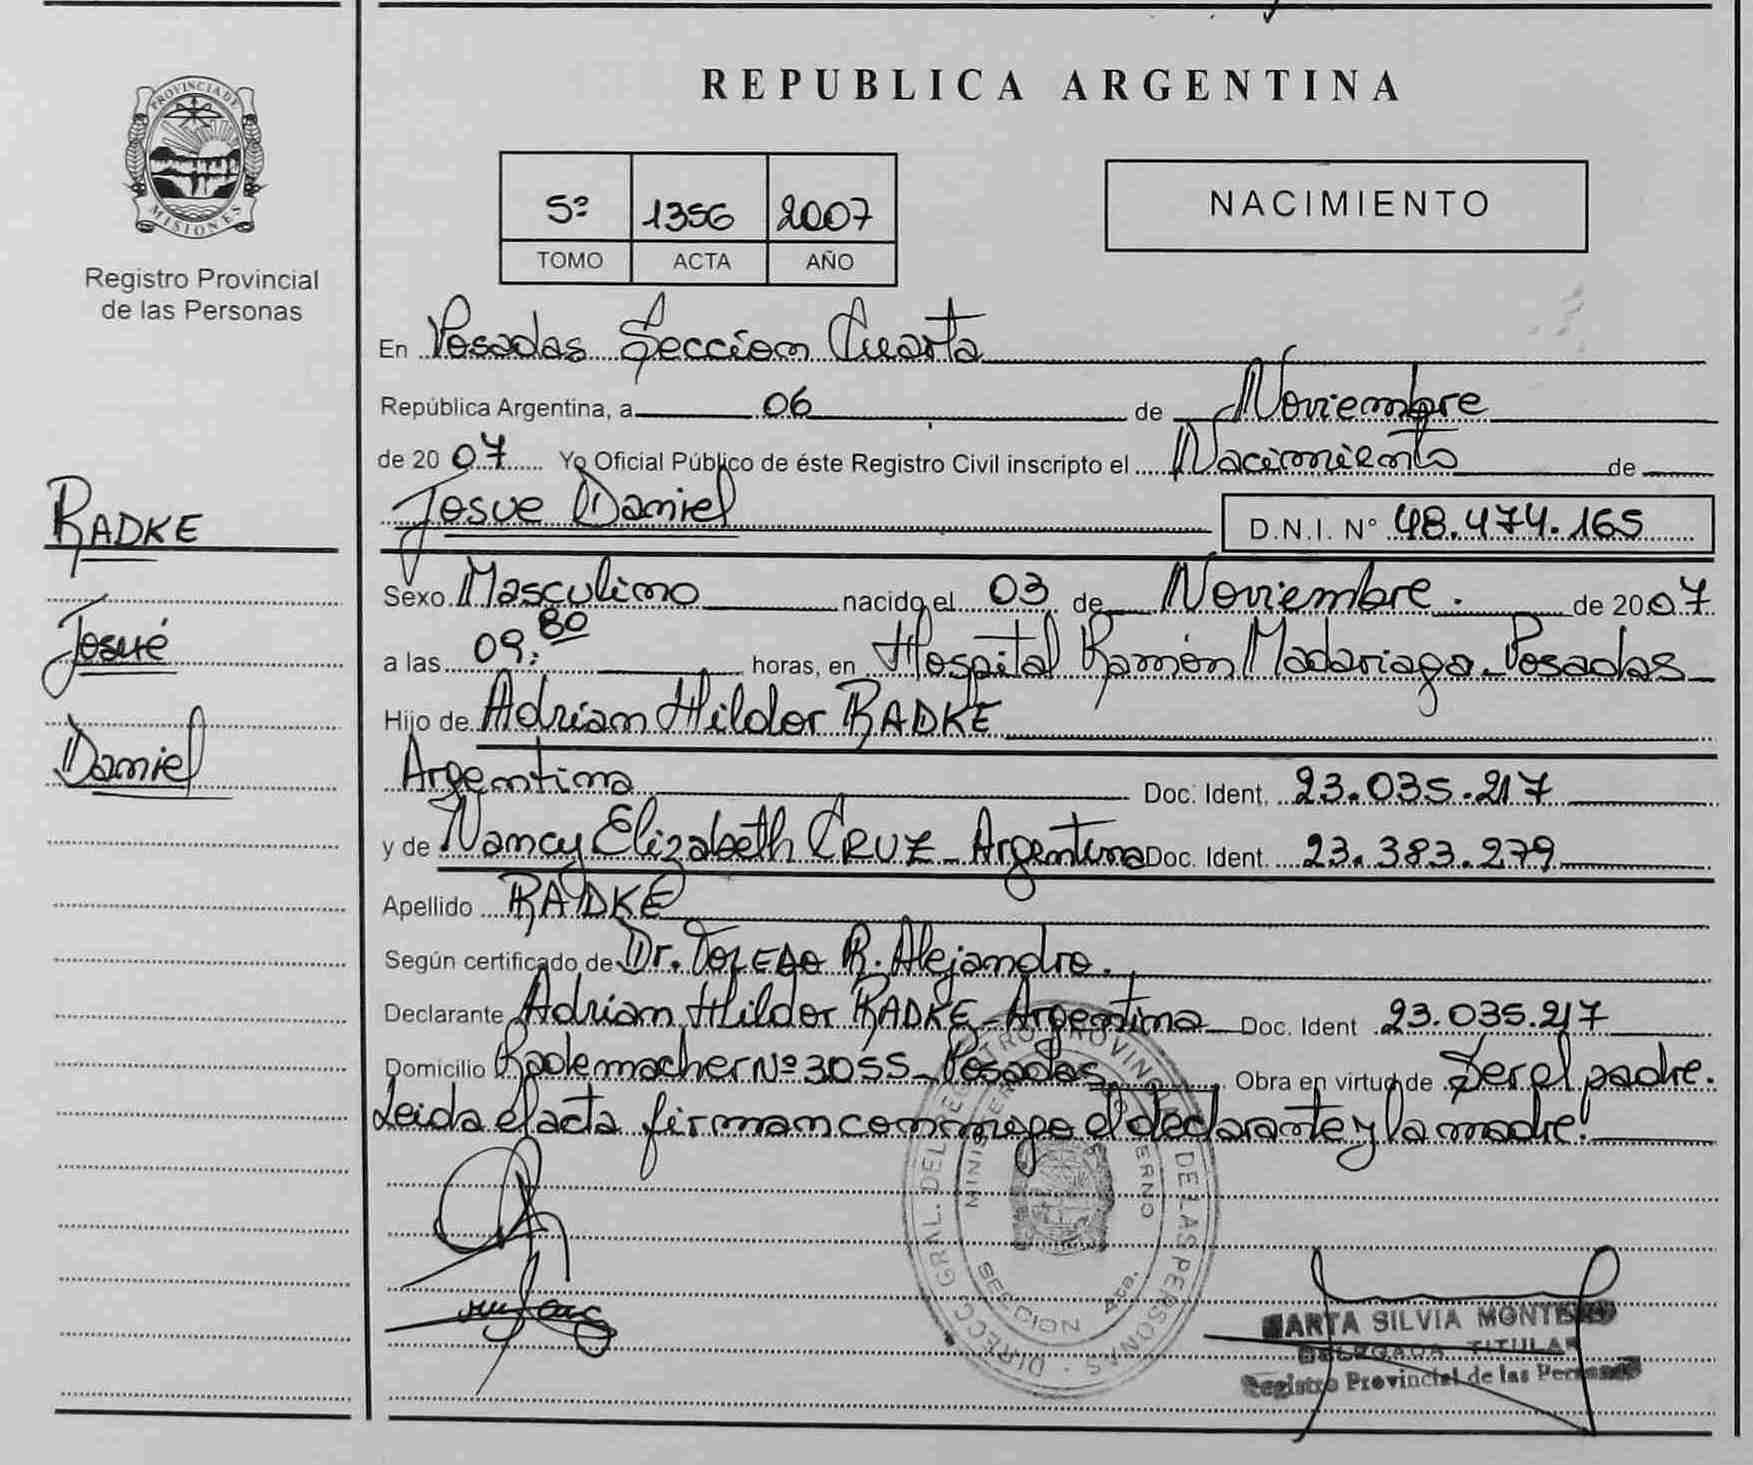 REPUBLICA ARGENTINA
PROVINCIA DE MISIONES
Registro Provincial
de las Personas
5º 1356 2007
TOMO ACTA AÑO
NACIMIENTO
En Posadas Seccion Cuarta
República Argentina, a 06 de Noviembre
de 2007 Yo Oficial Público de éste Registro Civil inscripto el Nacimiento de
Josue Daniel D.N.I. Nº 48.474.165
RADKE
Josué
Daniel
Sexo Masculino nacido el 03 de Noviembre. de 2007
a las 09:30 horas, en Hospital Ramón Madariaga - Posadas
Hijo de Adrian Hildor RADKE
Argentina Doc. Ident. 23.035.217
y de Nancy Elizabeth CRUZ - Argentina Doc. Ident. 23.383.279
Apellido RADKE
Según certificado de Dr. TOLEDO R. Alejandro.
Declarante Adrian Hildor RADKE - Argentina Doc. Ident 23.035.217
Domicilio Rademacher Nº 3055 - Posadas Obra en virtud de Ser el padre.
Leida el acta firman conmigo el declarante y la madre.
DIRECC. GRAL. DEL REGISTRO PROVINCIAL DE LAS PERSONAS
SECCION 4ta.
MARTA SILVIA MONTERO
DELEGADA TITULAR
Registro Provincial de las Personas